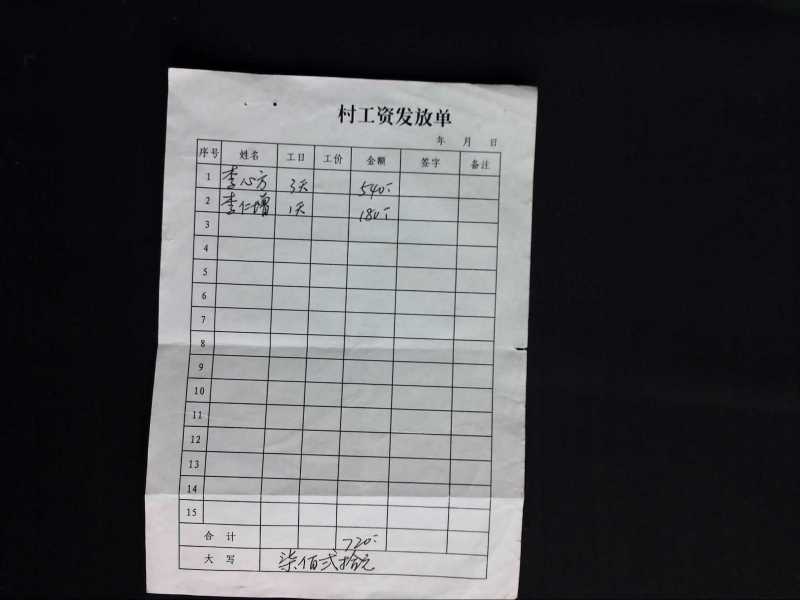 村工资发放单
年 月 日
序号 姓名 工日 工价 金额 签字 备注
1 李心方 3天 540-
2 李仁增 1天 180-
3
4
5
6
7
8
9
10
11
12
13
14
15
合计 720-
大写 柒佰弍拾元